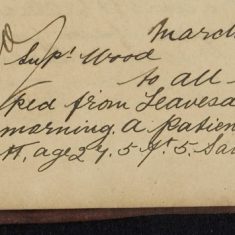 March
Supt. Wood
to all
ked from Leavesd
morning, a patien
tt, age 27, 5 ft 5. Sal